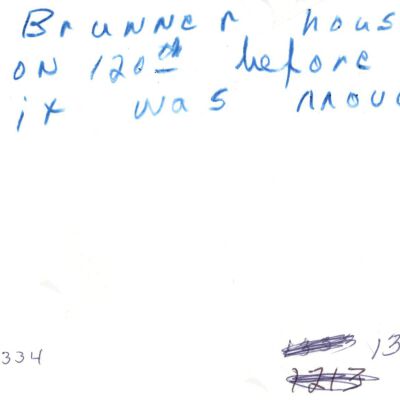 Brunner hous
on 120th before
it was mov
334 13
1213